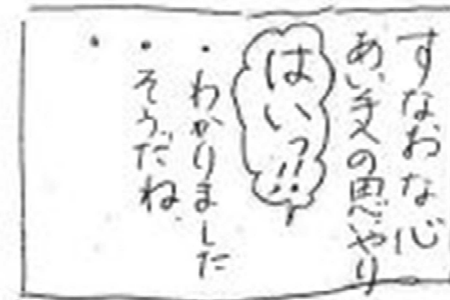 すなお な心
あい手への思いやり
はいっ!!
・わかりました
・そうだね
・